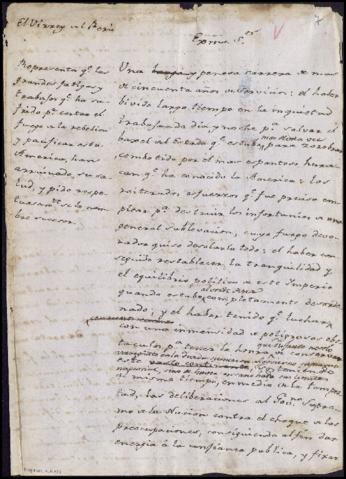 El Virrey del Perú
Exmo. S.or
7
Representa q.e las
grandes fatigas y
trabajos q.e ha su
frido p.a cortar el
fuego a la rebelion
y pacificar esta
America, han
arruinado su sa
lud, y pide respe
tuosam.te se le nom
bre sucesor.
Una larga y penosa carrera de mas
de cincuenta años de servicio: el haber
vivido largo tiempo en la inquietud
trabajando dia y noche p.a salvar el
baxel del Estado q.e estaba para zozobrar
combatido por el mas espantoso hura
can q.e ha conocido la America: los
reiterados esfuerzos q.e fue preciso em
plear p.a destruir los infortunios de una
general sublevacion, cuyo fuego devo
rador quiso desolarlo todo: el haber con
seguido restablecer la tranquilidad y
el equilibrio politico de este Imperio
quando estaba completamente desorde
nado; y el haber tenido q.e luchar
con una inmensidad de peligrosos obs
taculos p.a tener la honra de conservar
este vasto continente, sosteniendo
al mismo tiempo, en medio de la tempes
tad, las deliberaciones del Gov.no Supre
mo de la Nacion contra el choque de las
preocupaciones, consiguiendo al fin dar
energia a la confianza publica, y fixar